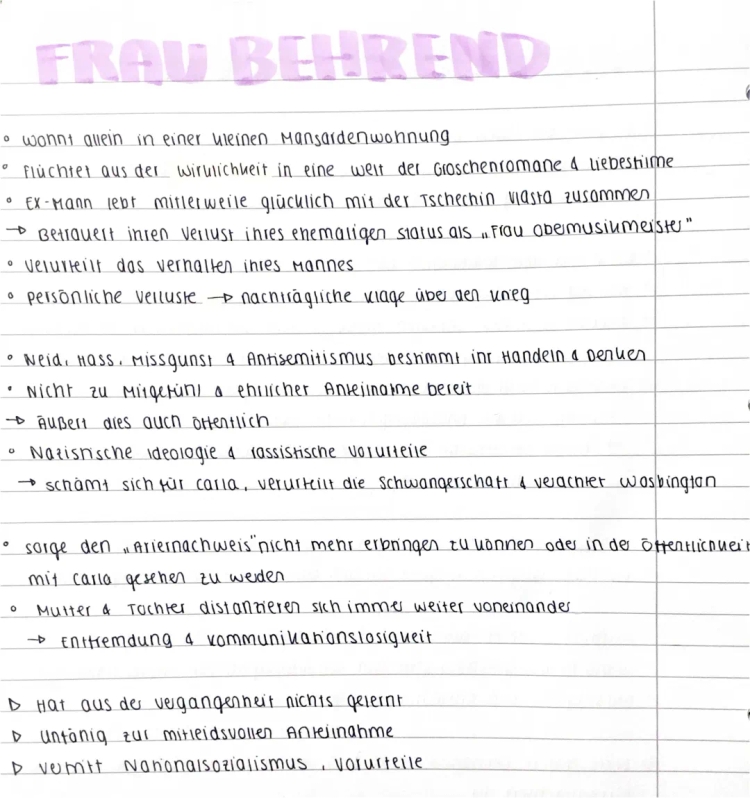 FRAU BEHREND
° wohnt allein in einer kleinen Mansardenwohnung
° Flüchtet aus der Wirklichkeit in eine Welt der Groschenromane & Liebesfilme
° Ex-Mann lebt mitlerweile glücklich mit der Tschechin Vlasta zusammen
→ Betrauert ihren Verlust ihres ehemaligen Status als „Frau Obermusikmeister"
° Verurteilt das Verhalten ihres Mannes
° persönliche Verluste → nachträgliche Klage über den Krieg
° Neid, Hass, Missgunst & Antisemitismus bestimmt ihr Handeln & Denken
° Nicht zu Mitgefühl & ehrlicher Anteilnahme bereit
→ äußert dies auch öffentlich
° Nazistische Ideologie & rassistische Vorurteile
→ schämt sich für Carla, verurteilt die Schwangerschaft & verachtet Washington
° sorge den „Ariernachweis" nicht mehr erbringen zu können oder in der Öffentlichkeit
mit Carla gesehen zu werden
° Mutter & Tochter distanzieren sich immer weiter voneinander
→ Entfremdung & Kommunikationslosigkeit
▷ Hat aus der Vergangenheit nichts gelernt
▷ unfähig zur mitleidsvollen Anteilnahme
▷ Nationalsozialismus, Vorurteile